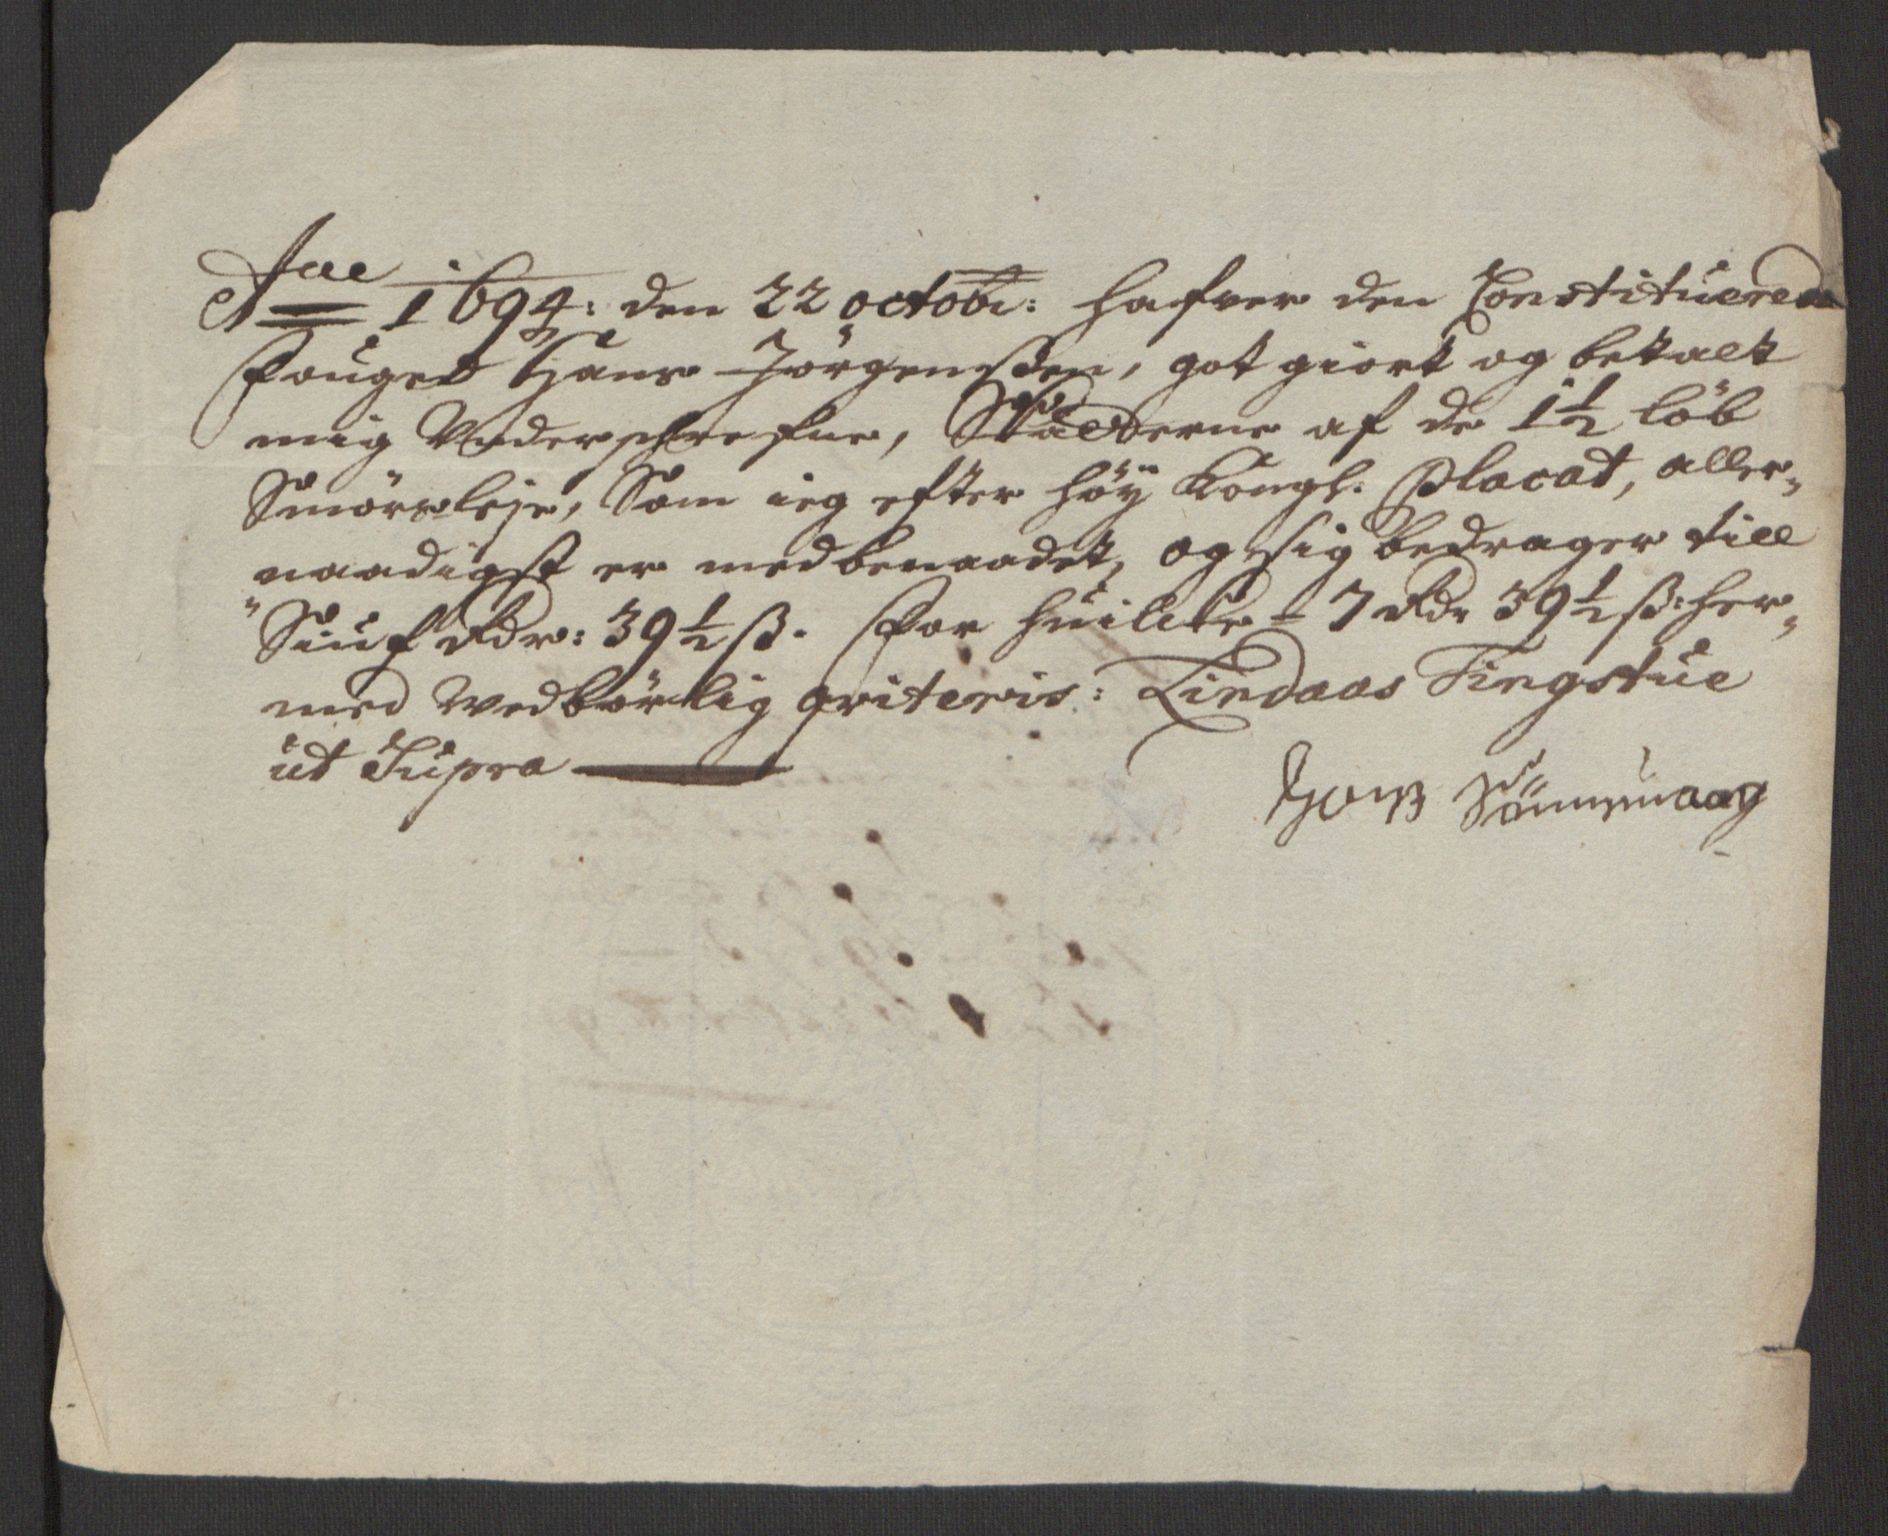 Aar 1694: den 22 octobr: hafver den Constituerede
Fouget Hans Jörgensøen, got giort og betalt
mig Underschrefne, af de 1½ löb
Smörsleje, Som ieg efter höy Kongl: Placat, aller-
naadigst er med benaadet, og sig bedrager till
Siuf Rdr: 39½ ß. For huilcke - 7 Rdr 39½ ß: her-
med vedbörlig qviteris: Lindaas Tingstue
ut Supra
Sönnemaag